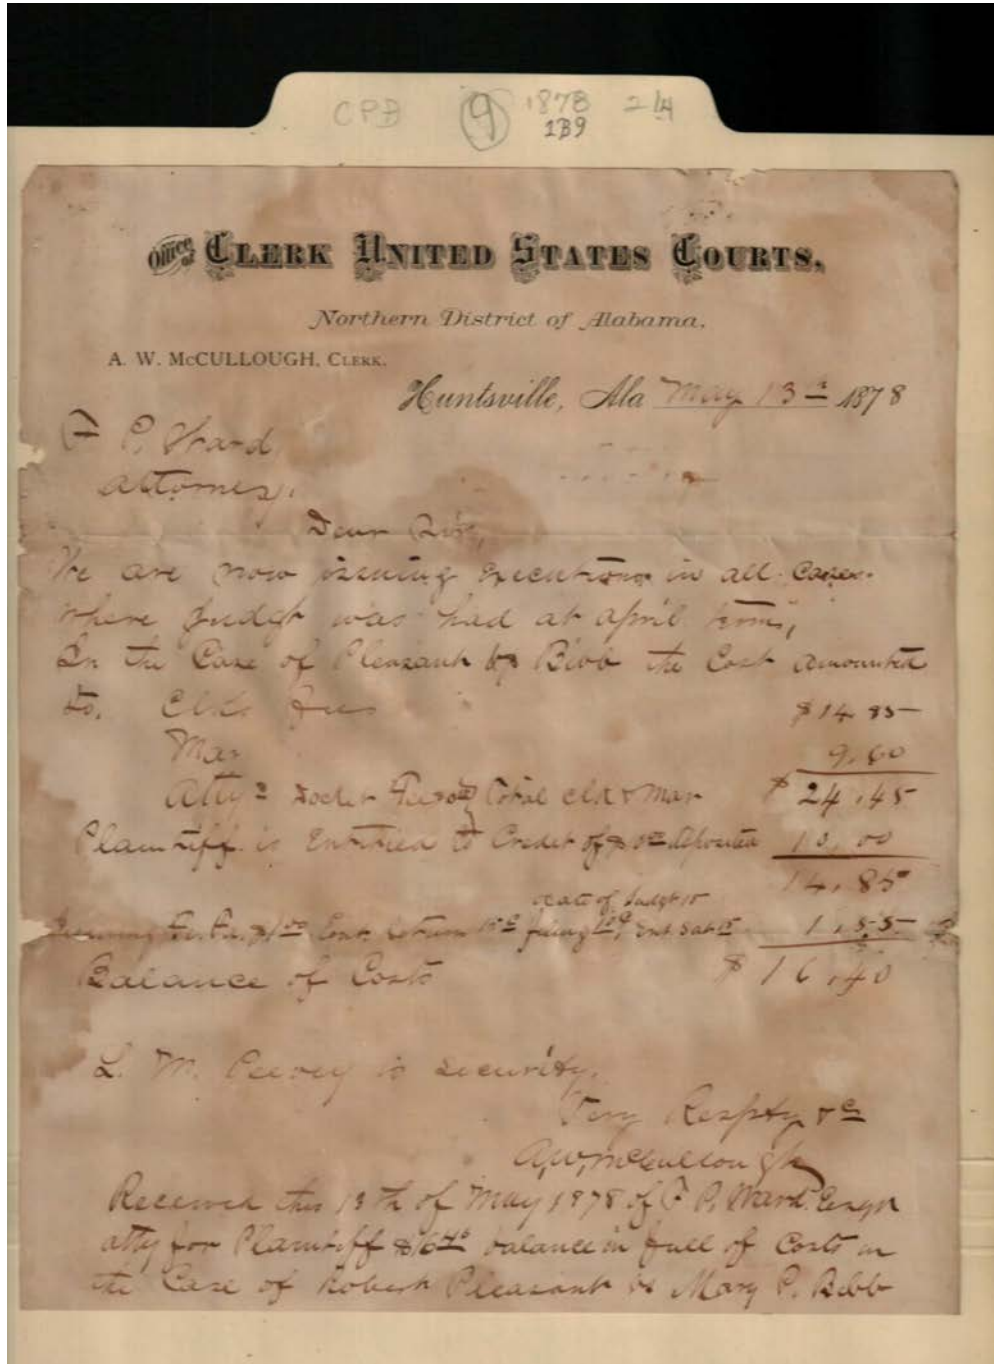 CPB 9 1878 2/4
1B9
Office of CLERK UNITED STATES COURTS.
Northern District of Alabama,
A. W. McCULLOUGH, CLERK.
Huntsville, Ala May 13th 1878
F P. Ward
Attorney.
Dear Sir,
We are now issuing Executions in all Cases.
where Judgt was had at April term,
In the Case of Pleasant vs Bibb the Cost amounted
to. Clks fees $14.85
Mar 9.60
Atty s Docket Total clk & Mar $24.45
Plaintiff is Entitled to Credit of deposited 10.00
14.85
date of Judgt 15
Issuing Fi. Fa. $1 00 Ent. return 15 c filing 10 c, Ent Sat 15 1.55
Balance of Costs $16.40
L. M. is security.
Very Respty &c
A, W, McCullough
Received this 13th of May 1878 of F P. Ward Esqr
atty for Plaintiff $16 40 balance in full of Costs in
the Case of Robert Pleasant vs Mary P. Bibb